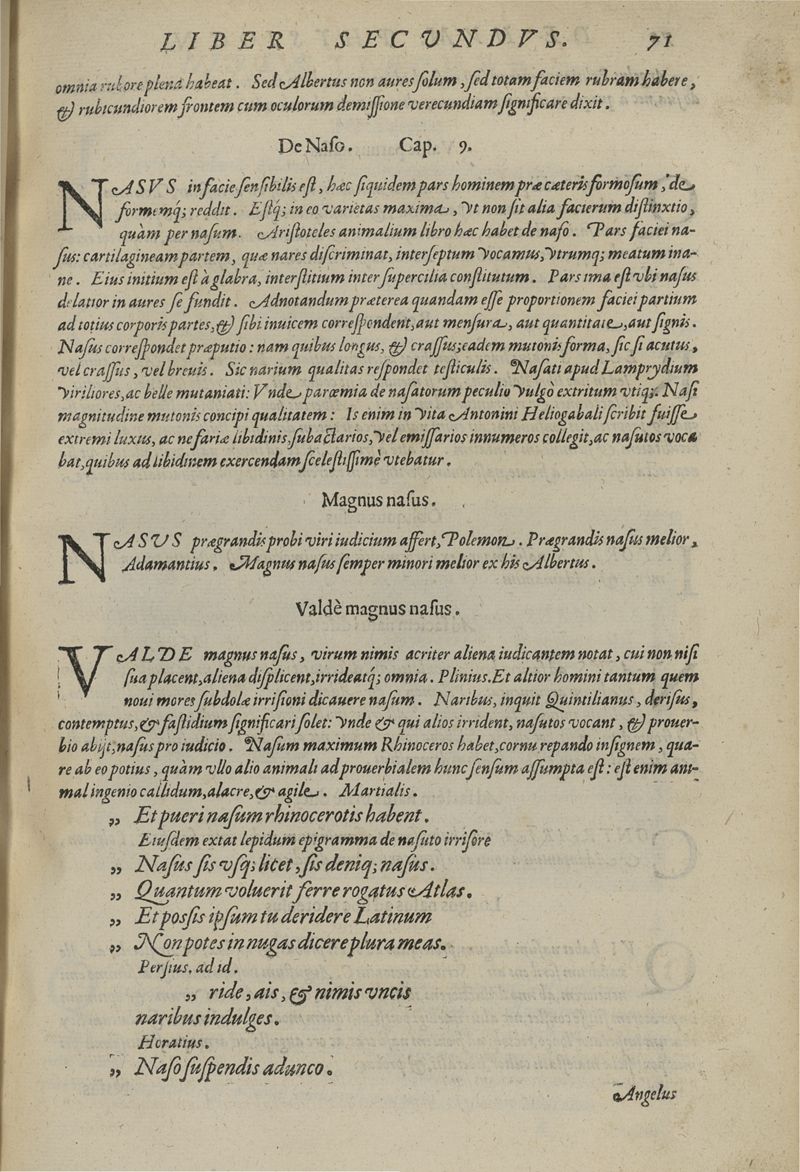 LIBER SECVNDVS. 71
omnia rubore plena habeat. Sed Albertus non aures solum, sed totam faciem rubram habere,
& rubicundiorem frontem cum oculorum demissione verecundiam significare dixit.
De Naso. Cap. 9.
NASVS in facie sensibilis est, hæc siquidem pars hominem præ cæteris formosum, de
formemq; reddit. Estq; in eo varietas maxima, vt non sit alia facierum distinxtio,
quàm per nasum. Aristoteles animalium libro hæc habet de naso. Pars faciei na-
sus: cartilagineam partem, quæ nares discriminat, interseptum vocamus, vtrumq; meatum ina-
ne. Eius initium est à glabra, interstitium inter supercilia constitutum. Pars ima est vbi nasus
delatior in aures se fundit. Adnotandum præterea quandam esse proportionem faciei partium
ad totius corporis partes, & sibi inuicem correspondent, aut mensura, aut quantitate, aut signis.
Nasus correspondet præputio: nam quibus longus, & crassus; eadem mutonis forma, sic si acutus,
vel crassus, vel breuis. Sic narium qualitas respondet testiculis. Nasati apud Lamprydium
viriliores, ac belle mutaniati: Vnde parœmia de nasatorum peculio vulgò extritum vtiq; Nasi
magnitudine mutonis concipi qualitatem: Is enim in vita Antonini Heliogabali scribit fuisse
extremi luxus, ac nefariæ libidinis, subactarios, vel emissarios innumeros collegit, ac nasutos voca
bat, quibus ad libidinem exercendam scelestissimè vtebatur.
Magnus nasus.
NASUS prægrandis probi viri iudicium affert, Polemon. Prægrandis nasus melior,
Adamantius. Magnus nasus semper minori melior ex his Albertus.
Valdè magnus nasus.
VALDE magnus nasus, virum nimis acriter aliena iudicantem notat, cui non nisi
sua placent, aliena displicent, irrideatq; omnia. Plinius. Et altior homini tantum quem
noui mores subdolæ irrisioni dicauere nasum. Naribus, inquit Quintilianus, derisus,
contemptus, & fastidium significari solet: vnde & qui alios irrident, nasutos vocant, & prouer-
bio abijt; nasus pro iudicio. Nasum maximum Rhinoceros habet, cornu repando insignem, qua-
re ab eo potius, quàm vllo alio animali ad prouerbialem hunc sensum assumpta est: est enim ani-
mal ingenio callidum, alacre, & agile. Martialis.
„ Et pueri nasum rhinocerotis habent.
Eiusdem extat lepidum epigramma de nasuto irrisore
„ Nasus sis vsq; licet, sis deniq; nasus.
„ Quantum voluerit ferre rogatus Atlas.
„ Et possis ipsum tu deridere Latinum
„ Non potes in nugas dicere plura meas.
Persius, ad id.
„ ride, ais, & nimis vncis
naribus indulges.
Horatius.
„ Naso suspendis adunco.
Angelus